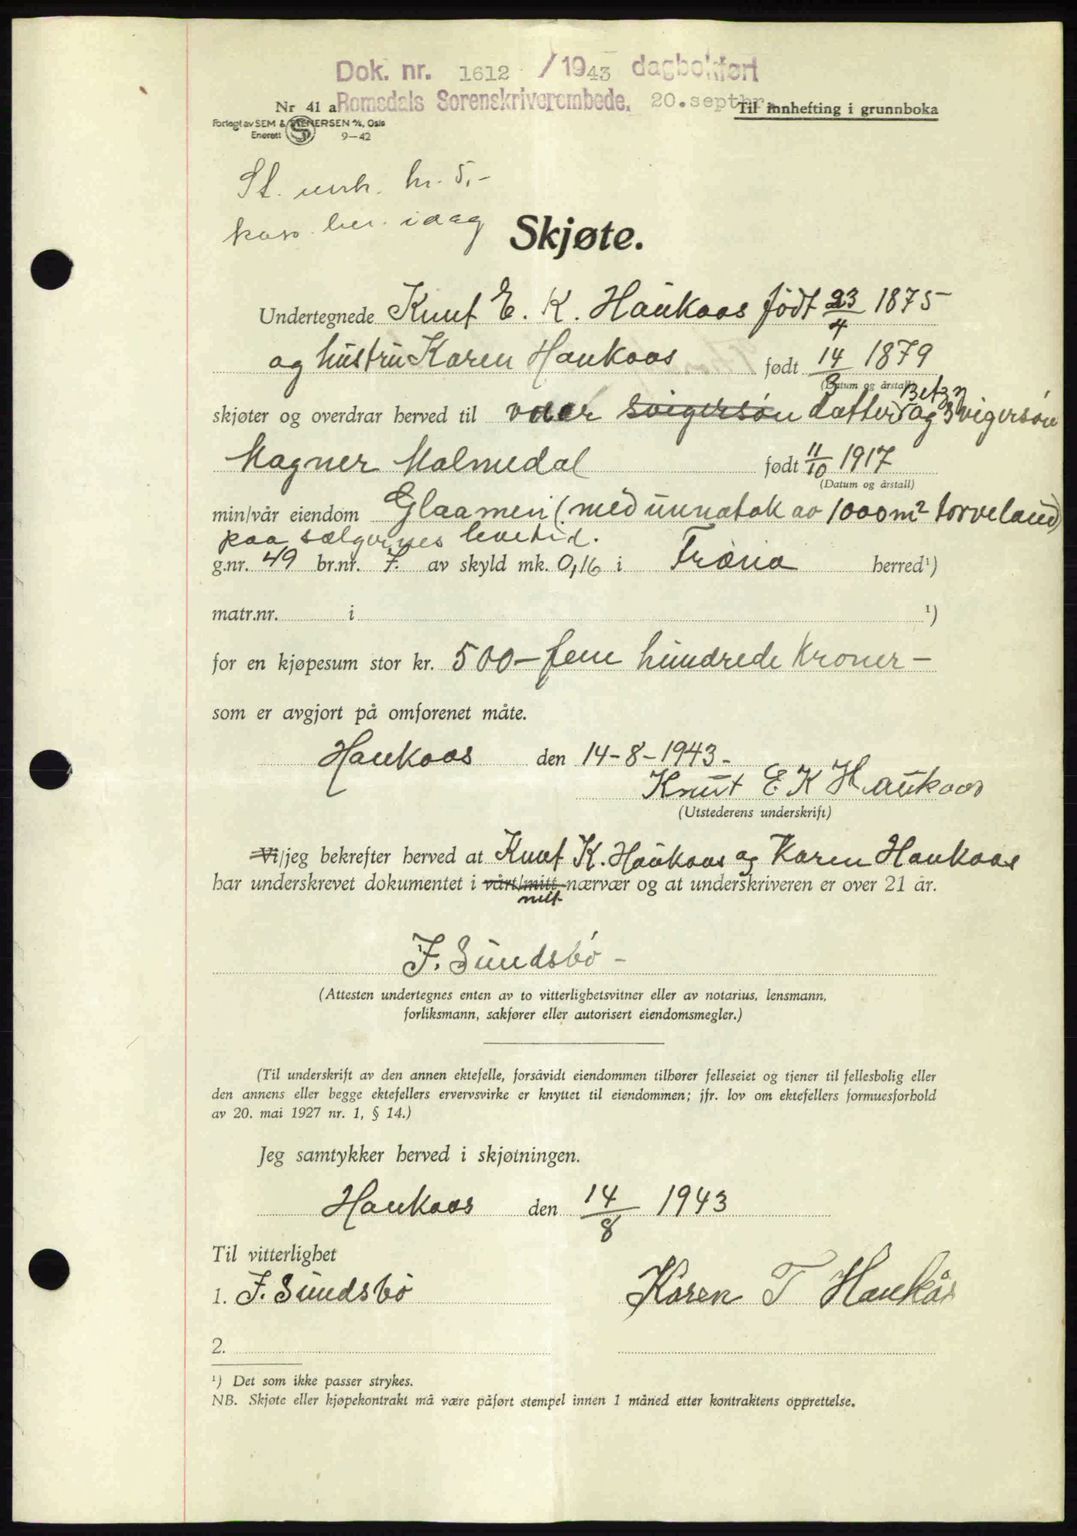 Dok. nr. 1612 /1943 dagbokført
Nr 41 a Romsdals Sorenskriverembede, 20. septbr. Til innhefting i grunnboka
Forlagt av SEM & STENERSEN A/S, Oslo
Enerett 9-42
St. merk. kr. 5,-
idag
Skjøte.
Undertegnede Knut E. K. Haukaas født 23/4 1875
og hustru Karen Haukaas født 14/8 1879
(Datum og årstall)
Betzy
skjøter og overdrar herved til vaar svigersøn datter og svigersøn
Magner Malmedal født 11/10 1917
(Datum og årstall)
min/vår eiendom Glaamen (med unnatak av 1000 m² torveland)
paa sælgernes levetid.
g.nr. 49 br.nr. 7. av skyld mk. 0,16 i Fræna herred¹)
matr.nr. i ¹)
for en kjøpesum stor kr. 500 – fem hundrede kroner –
som er avgjort på omforenet måte.
Haukaas den 14-8-1943-
Knut E K Haukaas
(Utstederens underskrift)
Vi/jeg bekrefter herved at Knut K. Haukaas og Karen Haukaas
har underskrevet dokumentet i vårt/mitt nærvær og at underskriveren er over 21 år.
mitt
F. Sundsbö -
(Attesten undertegnes enten av to vitterlighetsvitner eller av notarius, lensmann,
forliksmann, sakfører eller autorisert eiendomsmegler.)
(Til underskrift av den annen ektefelle, forsåvidt eiendommen tilhører felleseiet og tjener til fellesbolig eller
den annens eller begge ektefellers ervervsvirke er knyttet til eiendommen; jfr. lov om ektefellers formuesforhold
av 20. mai 1927 nr. 1, § 14.)
Jeg samtykker herved i skjøtningen.
Haukaas den 14/8 1943
Til vitterlighet
1. F. Sundsbö Karen T Haukås
2.
¹) Det som ikke passer strykes.
NB. Skjøte eller kjøpekontrakt må være påført stempel innen 1 måned etter kontraktens opprettelse.